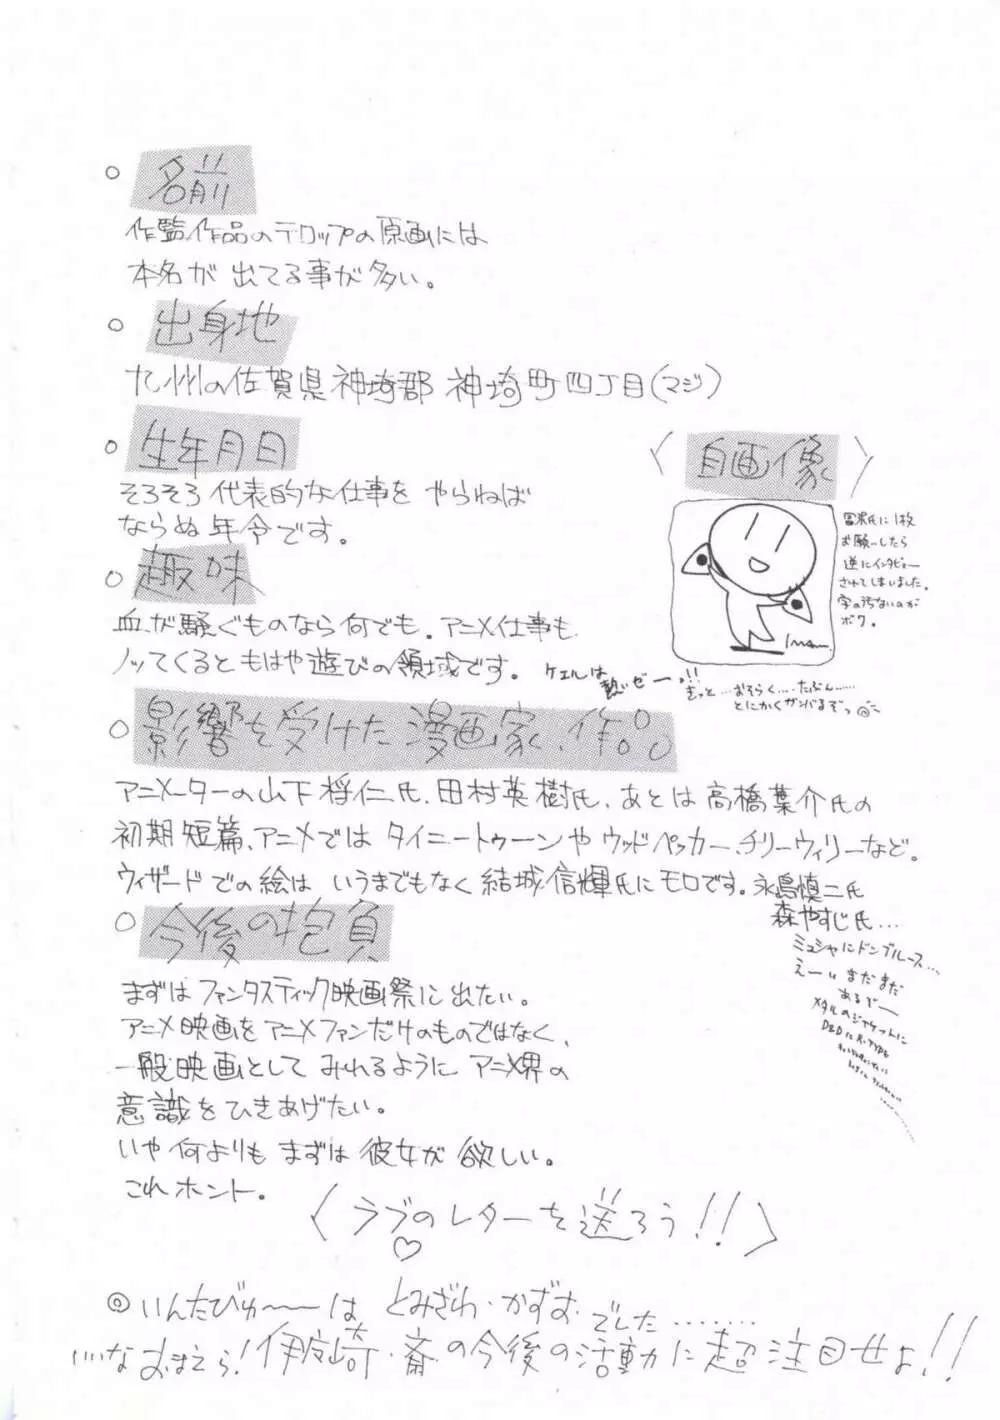 ○ 名前
作監作品のテロップの原画には
本名が出てる事が多い。
○ 出身地
九州の佐賀県神埼郡神埼町四丁目(マジ)
○ 生年月日
そろそろ代表的な仕事をやらねば
ならぬ年令です。
○ 趣味
血が騒ぐものなら何でも。アニメ仕事も
ノッてくるともはや遊びの領域です。
〈自画像〉
冨沢氏に1枚
お願いしたら
逆にインタビュー
されてしまいました。
字の汚ないのが
ボク。
ケェルは
熱いゼーっ!!
きっと…おそらく…たぶん……
とにかくガンバるぞっ
○ 影響を受けた漫画家、作品
アニメーターの山下将仁氏、田村英樹氏、あとは高橋葉介氏の
初期短篇、アニメではタイニートゥーンやウッドペッカー、チリーウィリーなど。
ウィザードでの絵はいうまでもなく結城信輝氏にモロです。永島慎二氏
森やすじ氏…
ミュシャにドンブルース…
えーいまだまだ
あるぞー
メタルのジャケットに
○ 今後の抱負
まずはファンタスティック映画祭に出たい。
アニメ映画をアニメファンだけのものではなく、
一般映画としてみれるようにアニメ界の
意識をひきあげたい。
いや何よりもまずは彼女が欲しい。
これホント。
〈ラブのレターを送ろう!!〉
♡
◎いんたびゅ〜〜〜はとみざわ・かずおでした………
いいなおまえら!伊座崎・斎の今後の活動に超注目せよ!!